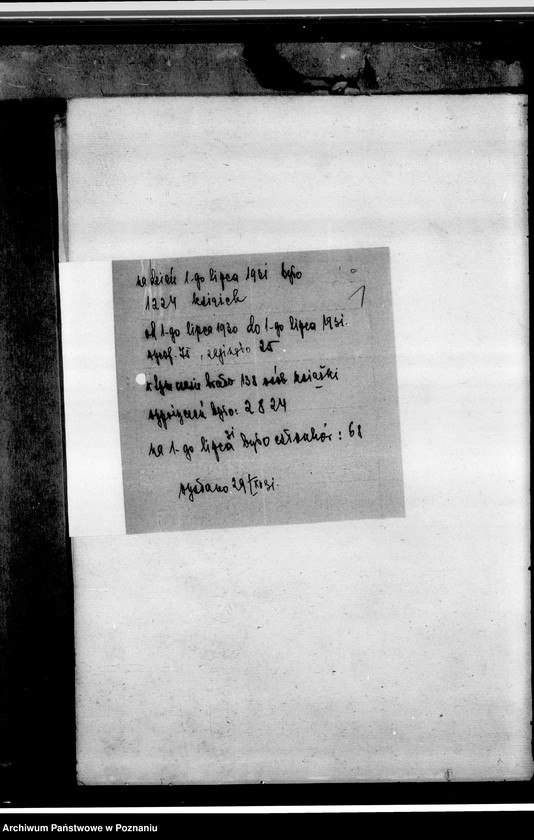 na dzień 1-go lipca 1931 było
1224 książek
1
od 1-go lipca 1930 do 1-go lipca 1931.
, zginęło 25
w tym czasie brało 138 osób książki
wypożyczeń było: 2824
na 1-go lipca 31 było członków: 68
wysłano 29/XI 31.
Archiwum Państwowe w Poznaniu